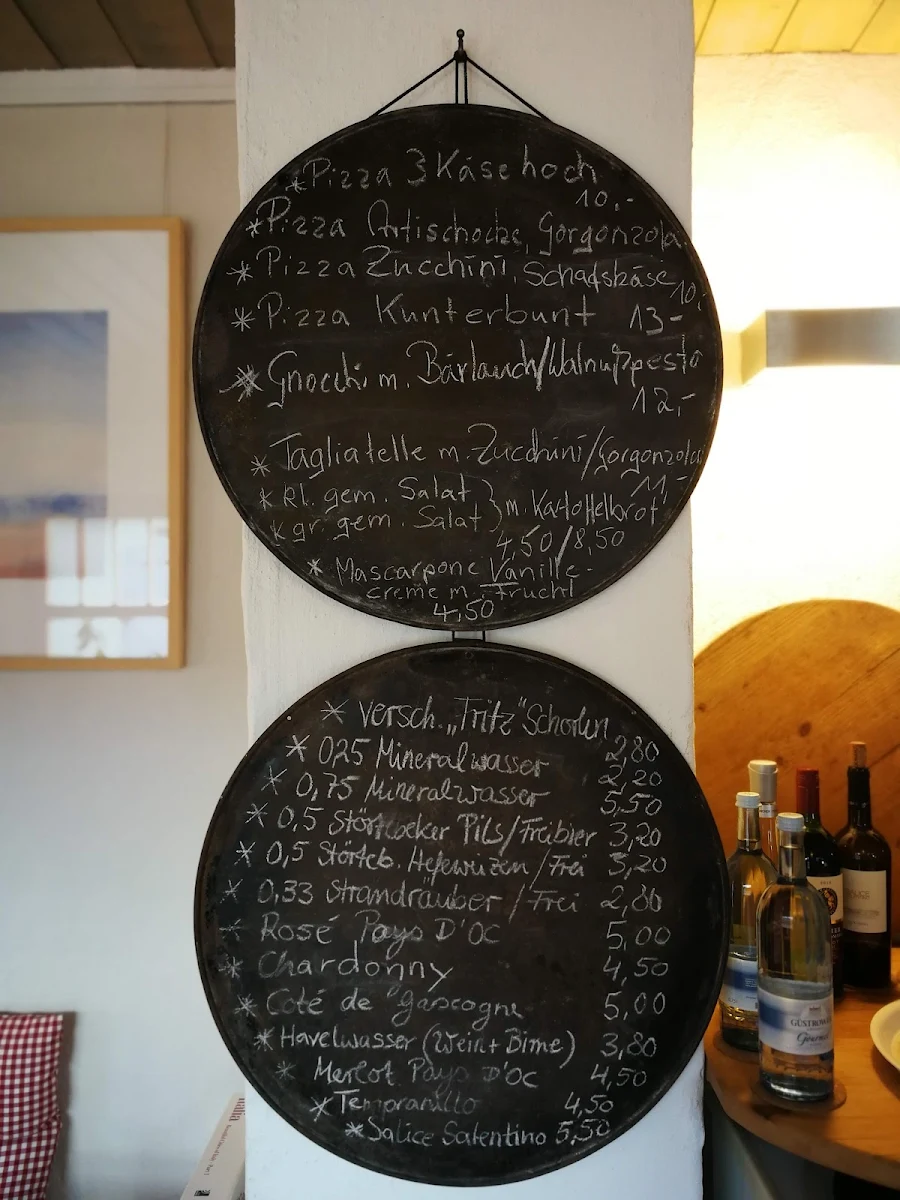 * Pizza 3 Käse hoch
10,-
* Pizza Artischocke, Gorgonzola
* Pizza Zucchini, Schafskäse
10,-
* Pizza Kunterbunt 13-
* Gnocchi m. Bärlauch/Walnußpesto
12,-
* Tagliatelle m. Zucchini/Gorgonzola
11,-
* Kl. gem. Salat } m. Kartoffelbrot
* gr. gem. Salat
4,50/8,50
* Mascarpone Vanille-
creme m. Frucht
4,50
* versch. „Fritz“ Schorlen 2,80
* 025 Mineralwasser 2,20
* 0,75 Mineralwasser 5,50
* 0,5 Störtebeker Pils/Freibier 3,20
* 0,5 Störteb. Hefeweizen/Frei 3,20
* 0,33 Strandräuber/Frei 2,80
* Rosé Pays D'OC 5,00
* Chardonny 4,50
* Coté de Gascogne 5,00
* Havelwasser (Wein+Birne) 3,80
* Merlot Pays D'OC 4,50
* Tempranillo 4,50
* Salice Salentino 5,50
GÜSTROWER
Gourmet